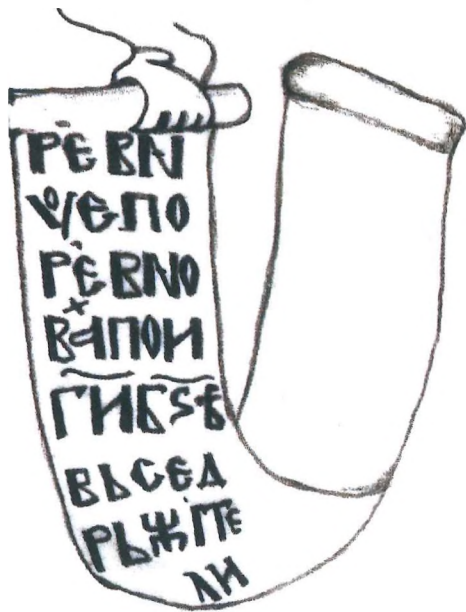 РЕВN
ꙊЄПО
РЕВNО
ВАⷯПОИ
Г҃И Б҃ЅѢ
ВЬСЕД
РЬЖІТЕ
ЛИ